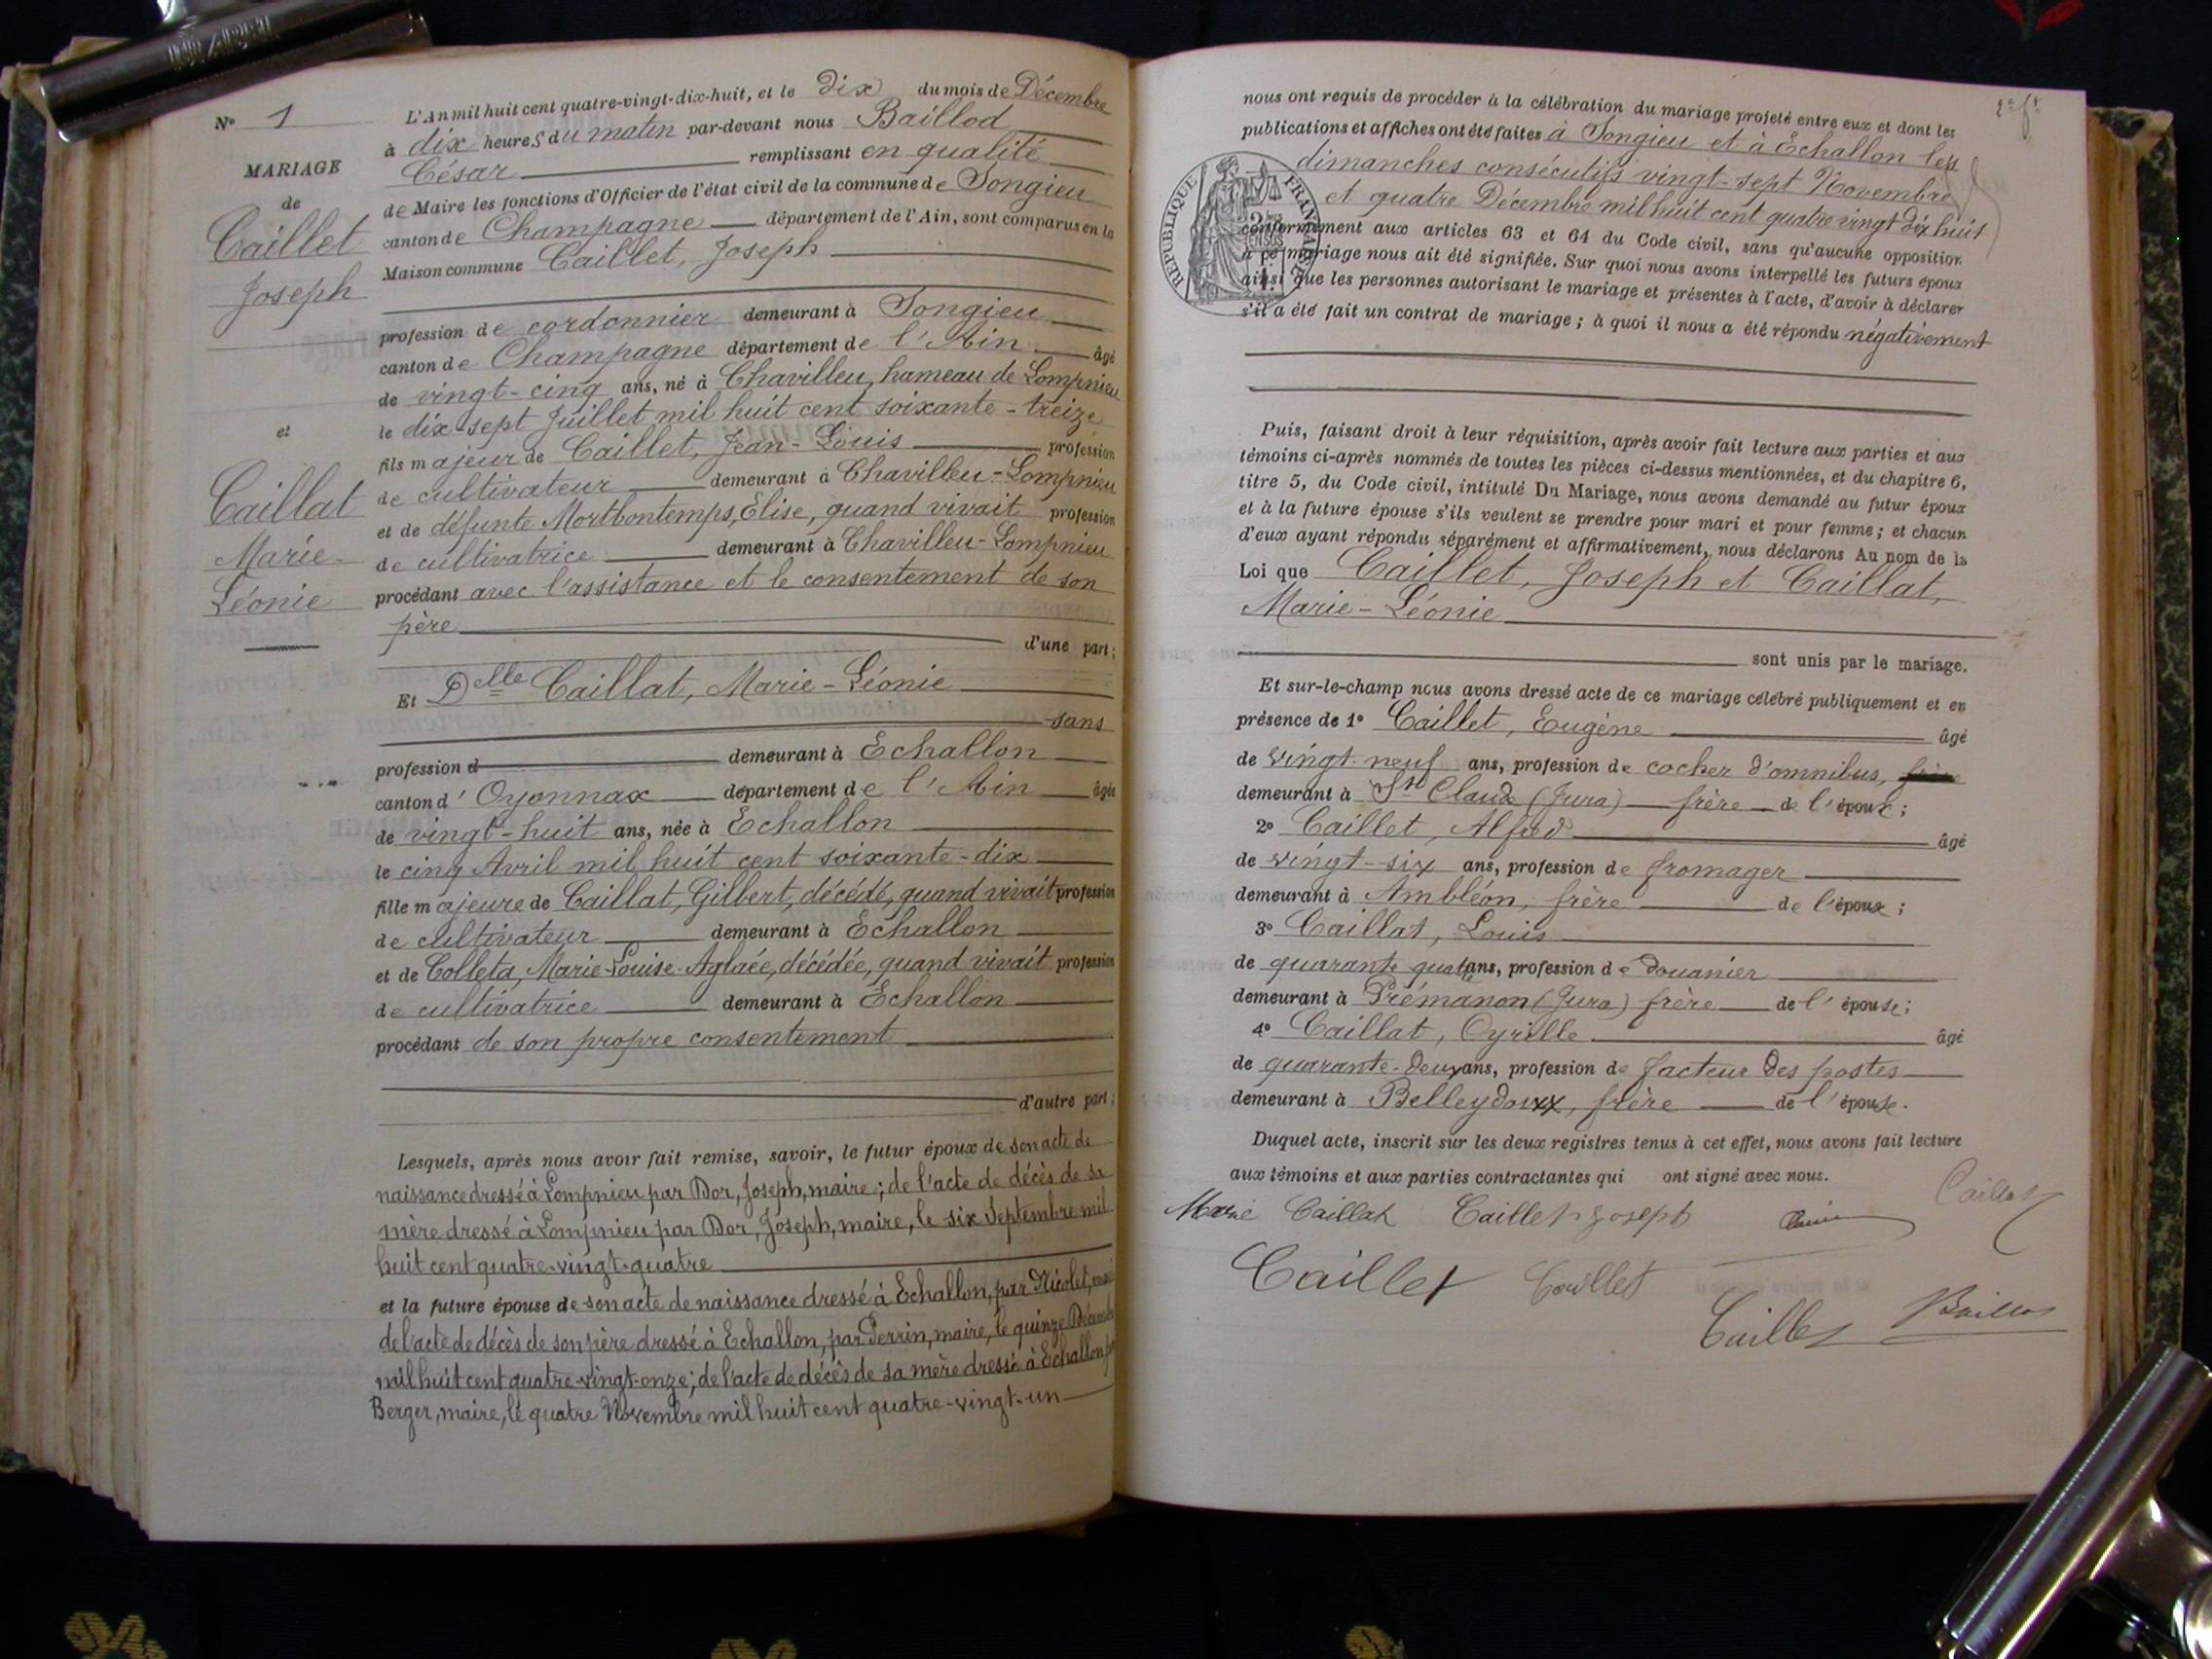 INOXABEL
N° 1
MARIAGE
de
Caillet
Joseph
et
Caillat
Marie-
Léonie
L'An mil huit cent quatre-vingt-dix-huit, et le dix du mois de Décembre
à dix heures du matin par-devant nous Baillod
César remplissant en qualité
de Maire les fonctions d'Officier de l'état civil de la commune de Songieu
canton de Champagne département de l'Ain, sont comparus en la
Maison commune Caillet, Joseph
profession de cordonnier demeurant à Songieu
canton de Champagne département de l'Ain âgé
de vingt-cinq ans, né à Chavilleu, hameau de Lompnieu
le dix-sept Juillet mil huit cent soixante-treize
fils majeur de Caillet, Jean-Louis profession
de cultivateur demeurant à Chavilleu-Lompnieu
et de défunte Mortbontemps, Elise, quand vivait profession
de cultivatrice demeurant à Chavilleu-Lompnieu
procédant avec l'assistance et le consentement de son
père
d'une part;
Et Delle Caillat, Marie-Léonie
sans
profession d demeurant à Echallon
canton d'Oyonnax département de l'Ain âgée
de vingt-huit ans, née à Echallon
le cinq Avril mil huit cent soixante-dix
fille majeure de Caillat, Gilbert, décédé, quand vivait profession
de cultivateur demeurant à Echallon
et de Colleta, Marie-Louise-Aglaée, décédée, quand vivait profession
de cultivatrice demeurant à Echallon
procédant de son propre consentement
d'autre part;
Lesquels, après nous avoir fait remise, savoir, le futur époux de son acte de
naissance dressé à Lompnieu par Dor, Joseph, maire; de l'acte de décès de sa
mère dressé à Lompnieu par Dor, Joseph, maire, le six Septembre mil
huit cent quatre-vingt-quatre
et la future épouse de son acte de naissance dressé à Echallon, par Nicolet,
de l'acte de décès de son père dressé à Echallon, par Perrin, maire, le quinze Décembre
mil huit cent quatre-vingt-onze; de l'acte de décès de sa mère dressé à Echallon
Berger, maire, le quatre Novembre mil huit cent quatre-vingt-un
nous ont requis de procéder à la célébration du mariage projeté entre eux et dont les
publications et affiches ont été faites à Songieu et à Echallon les
dimanches consécutifs vingt-sept Novembre
et quatre Décembre mil huit cent quatre vingt dix huit
conformément aux articles 63 et 64 du Code civil, sans qu'aucune opposition
à ce mariage nous ait été signifiée. Sur quoi nous avons interpellé les futurs époux
ainsi que les personnes autorisant le mariage et présentes à l'acte, d'avoir à déclarer
s'il a été fait un contrat de mariage; à quoi il nous a été répondu négativement
REPUBLIQUE FRANÇAISE
Puis, faisant droit à leur réquisition, après avoir fait lecture aux parties et aux
témoins ci-après nommés de toutes les pièces ci-dessus mentionnées, et du chapitre 6,
titre 5, du Code civil, intitulé Du Mariage, nous avons demandé au futur époux
et à la future épouse s'ils veulent se prendre pour mari et pour femme; et chacun
d'eux ayant répondu séparément et affirmativement, nous déclarons Au nom de la
Loi que Caillet, Joseph et Caillat,
Marie-Léonie
sont unis par le mariage.
Et sur-le-champ nous avons dressé acte de ce mariage célébré publiquement et en
présence de 1° Caillet, Eugène âgé
de vingt-neuf ans, profession de cocher d'omnibus, frère
demeurant à St Claude (Jura) frère de l'époux;
2° Caillet, Alfred âgé
de vingt-six ans, profession de fromager
demeurant à Ambléon, frère de l'époux;
3° Caillat, Louis
de quarante quatre ans, profession de douanier
demeurant à Prémanon (Jura) frère de l'épouse;
4° Caillat, Cyrille âgé
de quarante-deux ans, profession de facteur des postes
demeurant à Belleydoux, frère de l'épouse.
Duquel acte, inscrit sur les deux registres tenus à cet effet, nous avons fait lecture
aux témoins et aux parties contractantes qui ont signé avec nous.
Marie Caillat Caillet Joseph Caillat
Caillet Caillet
Caillet Baillod